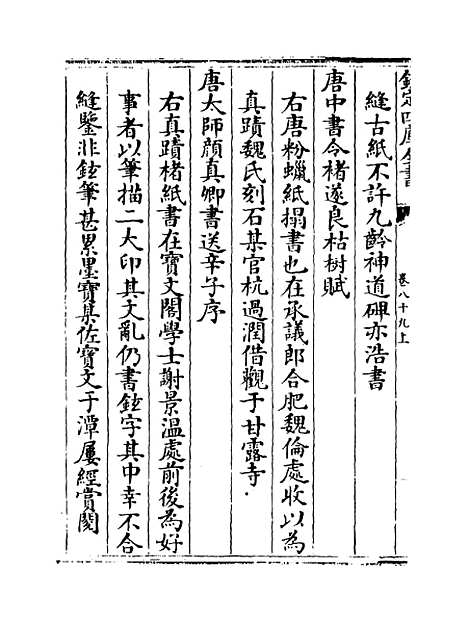 欽定四庫全書
卷八十九上
縫古紙不許九齡神道碑亦浩書
唐中書令褚遂良枯樹賦
右唐粉蠟紙搨書也在承議郎合肥魏倫處收以為
真蹟魏氏刻石某官杭過潤借觀于甘露寺
唐太師顔真卿書送辛子序
右真蹟楮紙書在寶文閣學士謝景溫處前後為好
事者以筆描二大印其文亂仍書鉉字其中幸不合
縫鑒非鉉筆甚累墨寶某佐寶文于潭屢經賞閱